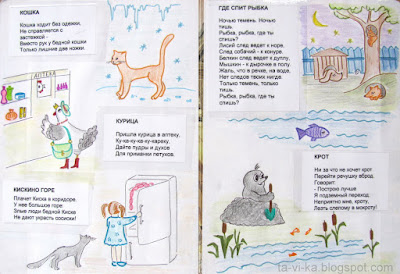 КОШКА
Кошка ходит без одежки,
Не справляется с
застежкой -
Вместо рук у бедной кошки
Только лишние две ножки.
АПТЕКА
КУРИЦА
Пришла курица в аптеку,
Ку-ка-ку-ка-ку-кареку,
Дайте пудры и духов
Для приманки петухов.
КИСКИНО ГОРЕ
Плачет Киска в коридоре.
У нее большое горе:
Злые люди бедной Киске
Не дают украсть сосиски!
ГДЕ СПИТ РЫБКА
Ночью темень. Ночью
тишь.
Рыбка, рыбка, где ты
спишь?
Лисий след ведет к норе,
След собачий - к конуре.
Белкин след ведет к дуплу,
Мышкин - к дырочке в полу.
Жаль, что в речке, на воде,
Нет следов твоих нигде.
Только темень, только
тишь.
Рыбка, рыбка, где ты
спишь?
КРОТ
Ни за что не хочет крот
Перейти речушку вброд.
Говорит:
- Построю лучше
Я подземный переход.
Неприятно мне, кроту,
Лезть слепому в мокроту!
ta-vi-ka.blogspot.com